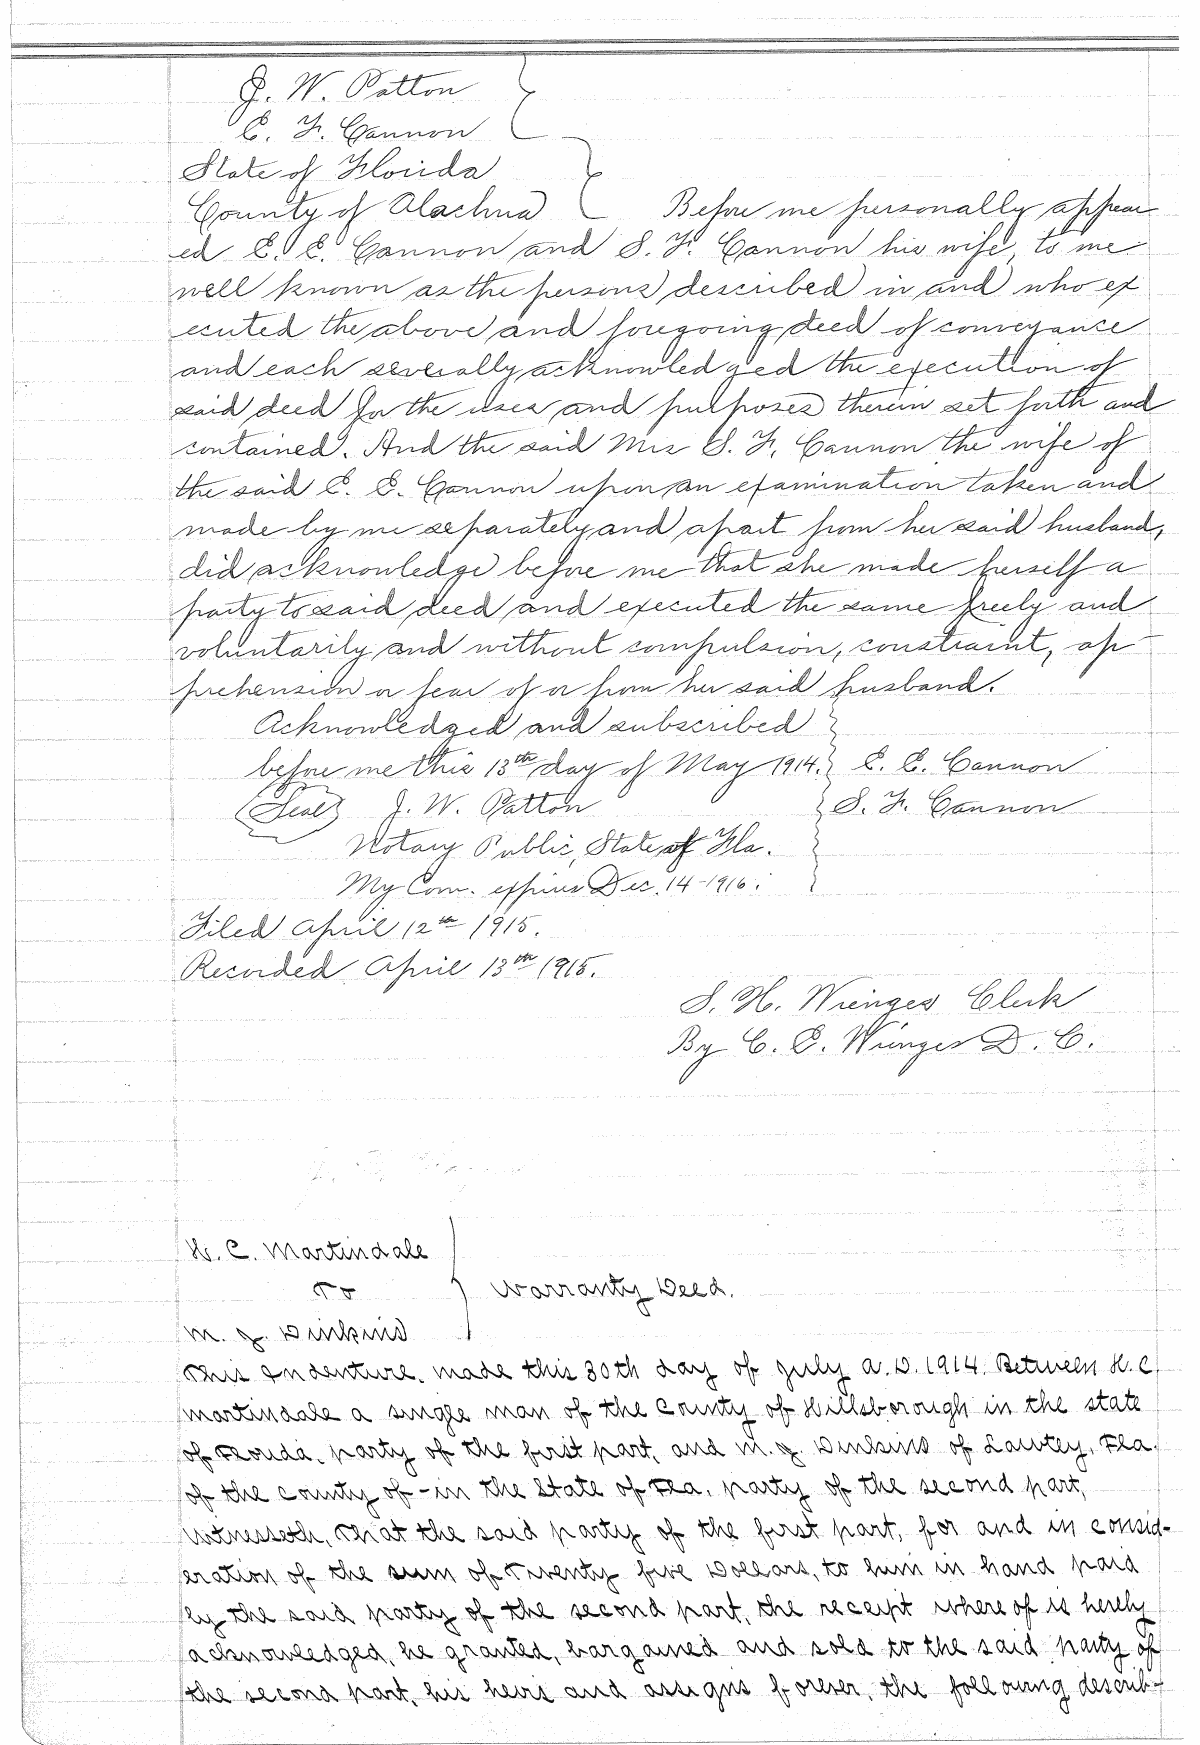 J. W. Patton
E. F. Cannon
State of Florida
County of Alachua Before me personally appear
ed E. E. Cannon and S. F. Cannon his wife, to me
well known as the persons described in and who ex
ecuted the above and foregoing deed of conveyance
and each severally acknowledged the execution of
said deed for the uses and purposes therein set forth and
contained. And the said Mrs S. F. Cannon the wife of
the said E. E. Cannon upon an examination taken and
made by me separately and apart from her said husband,
did acknowledge before me that she made herself a
party to said deed and executed the same freely and
voluntarily and without compulsion, constraint, ap-
prehension or fear of or from her said husband.
Acknowledged and subscribed
before me this 13th day of May 1914. E. E. Cannon
(Seal) J. W. Patton S. F. Cannon
Notary Public, State of Fla.
My Com. expires Dec. 14-1916.
Filed April 12th 1915.
Recorded April 13th 1915.
S. H. Wienges Clerk
By C. E. Wienges D. C.
H. C. Martindale
To Warranty Deed.
M. J. Dinkins
This Indenture, made this 30th day of July A.D. 1914. Between H. C.
Martindale a single man of the County of Hillsborough in the state
of Florida, party of the first part, and M. J. Dinkins of Lawtey, Fla.
of the county of - in the State of Fla, party of the second part,
Witnesseth, That the said party of the first part, for and in consid-
eration of the sum of Twenty five Dollars, to him in hand paid
by the said party of the second part, the receipt where of is hereby
acknowledged, he granted, bargained and sold to the said party of
the second part, his heirs and assigns forever, the following describ-